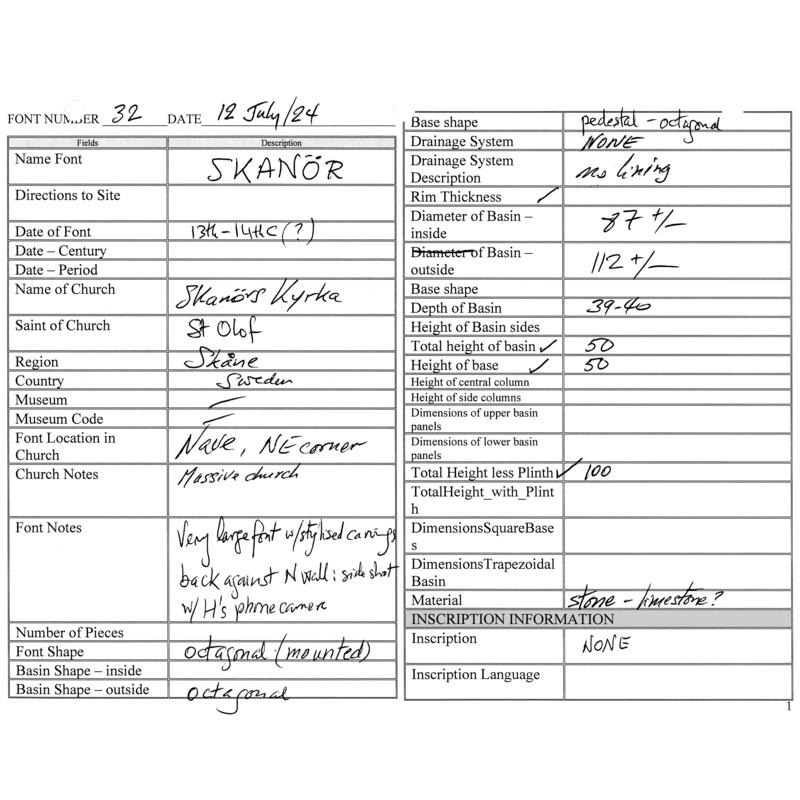 FONT NUMBER 32 DATE 12 July/24
Fields Description
Name Font SKANÖR
Directions to Site
Date of Font 13th-14thC (?)
Date – Century
Date – Period
Name of Church Skanörs Kyrka
Saint of Church St Olof
Region Skåne
Country Sweden
Museum —
Museum Code —
Font Location in
Church
Nave, NE corner
Church Notes Massive church
Font Notes
Very large font w/stylised carvings
back against N wall : side shot
w/ H's phone camera
Number of Pieces
Font Shape octagonal (mounted)
Basin Shape – inside
Basin Shape – outside octagonal
Base shape pedestal - octagonal
Drainage System NONE
Drainage System
Description
no lining
Rim Thickness ✓
Diameter of Basin –
inside
87 +/-
Diameter of Basin –
outside
112 +/-
Base shape
Depth of Basin 39-40
Height of Basin sides
Total height of basin ✓ 50
Height of base ✓ 50
Height of central column
Height of side columns
Dimensions of upper basin
panels
Dimensions of lower basin
panels
Total Height less Plinth ✓ 100
TotalHeight_with_Plint
h
DimensionsSquareBase
s
DimensionsTrapezoidal
Basin
Material stone - limestone?
INSCRIPTION INFORMATION
Inscription NONE
Inscription Language
1